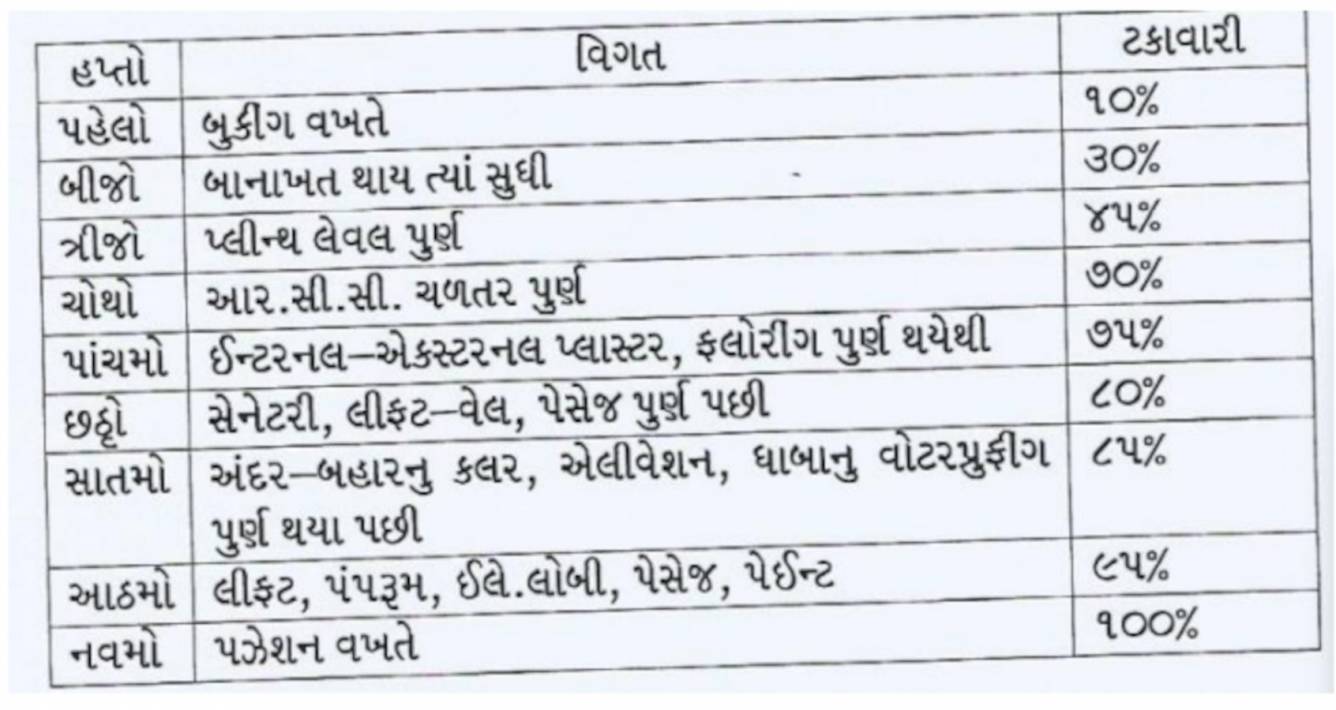 હપ્તો વિગત ટકાવારી
પહેલો બુકીંગ વખતે ૧૦%
બીજો બાનાખત થાય ત્યાં સુધી ૩૦%
ત્રીજો પ્લીન્થ લેવલ પુર્ણ ૪૫%
ચોથો આર.સી.સી. ચળતર પુર્ણ ૭૦%
પાંચમો ઈન્ટરનલ–એકસ્ટરનલ પ્લાસ્ટર, ફલોરીંગ પુર્ણ થયેથી ૭૫%
છઠ્ઠો સેનેટરી, લીફટ–વેલ, પેસેજ પુર્ણ પછી ૮૦%
સાતમો અંદર–બહારનુ કલર, એલીવેશન, ધાબાનુ વોટરપ્રુફીંગ ૮૫%
પુર્ણ થયા પછી
આઠમો લીફટ, પંપરૂમ, ઈલે.લોબી, પેસેજ, પેઈન્ટ ૯૫%
નવમો પઝેશન વખતે ૧૦૦%